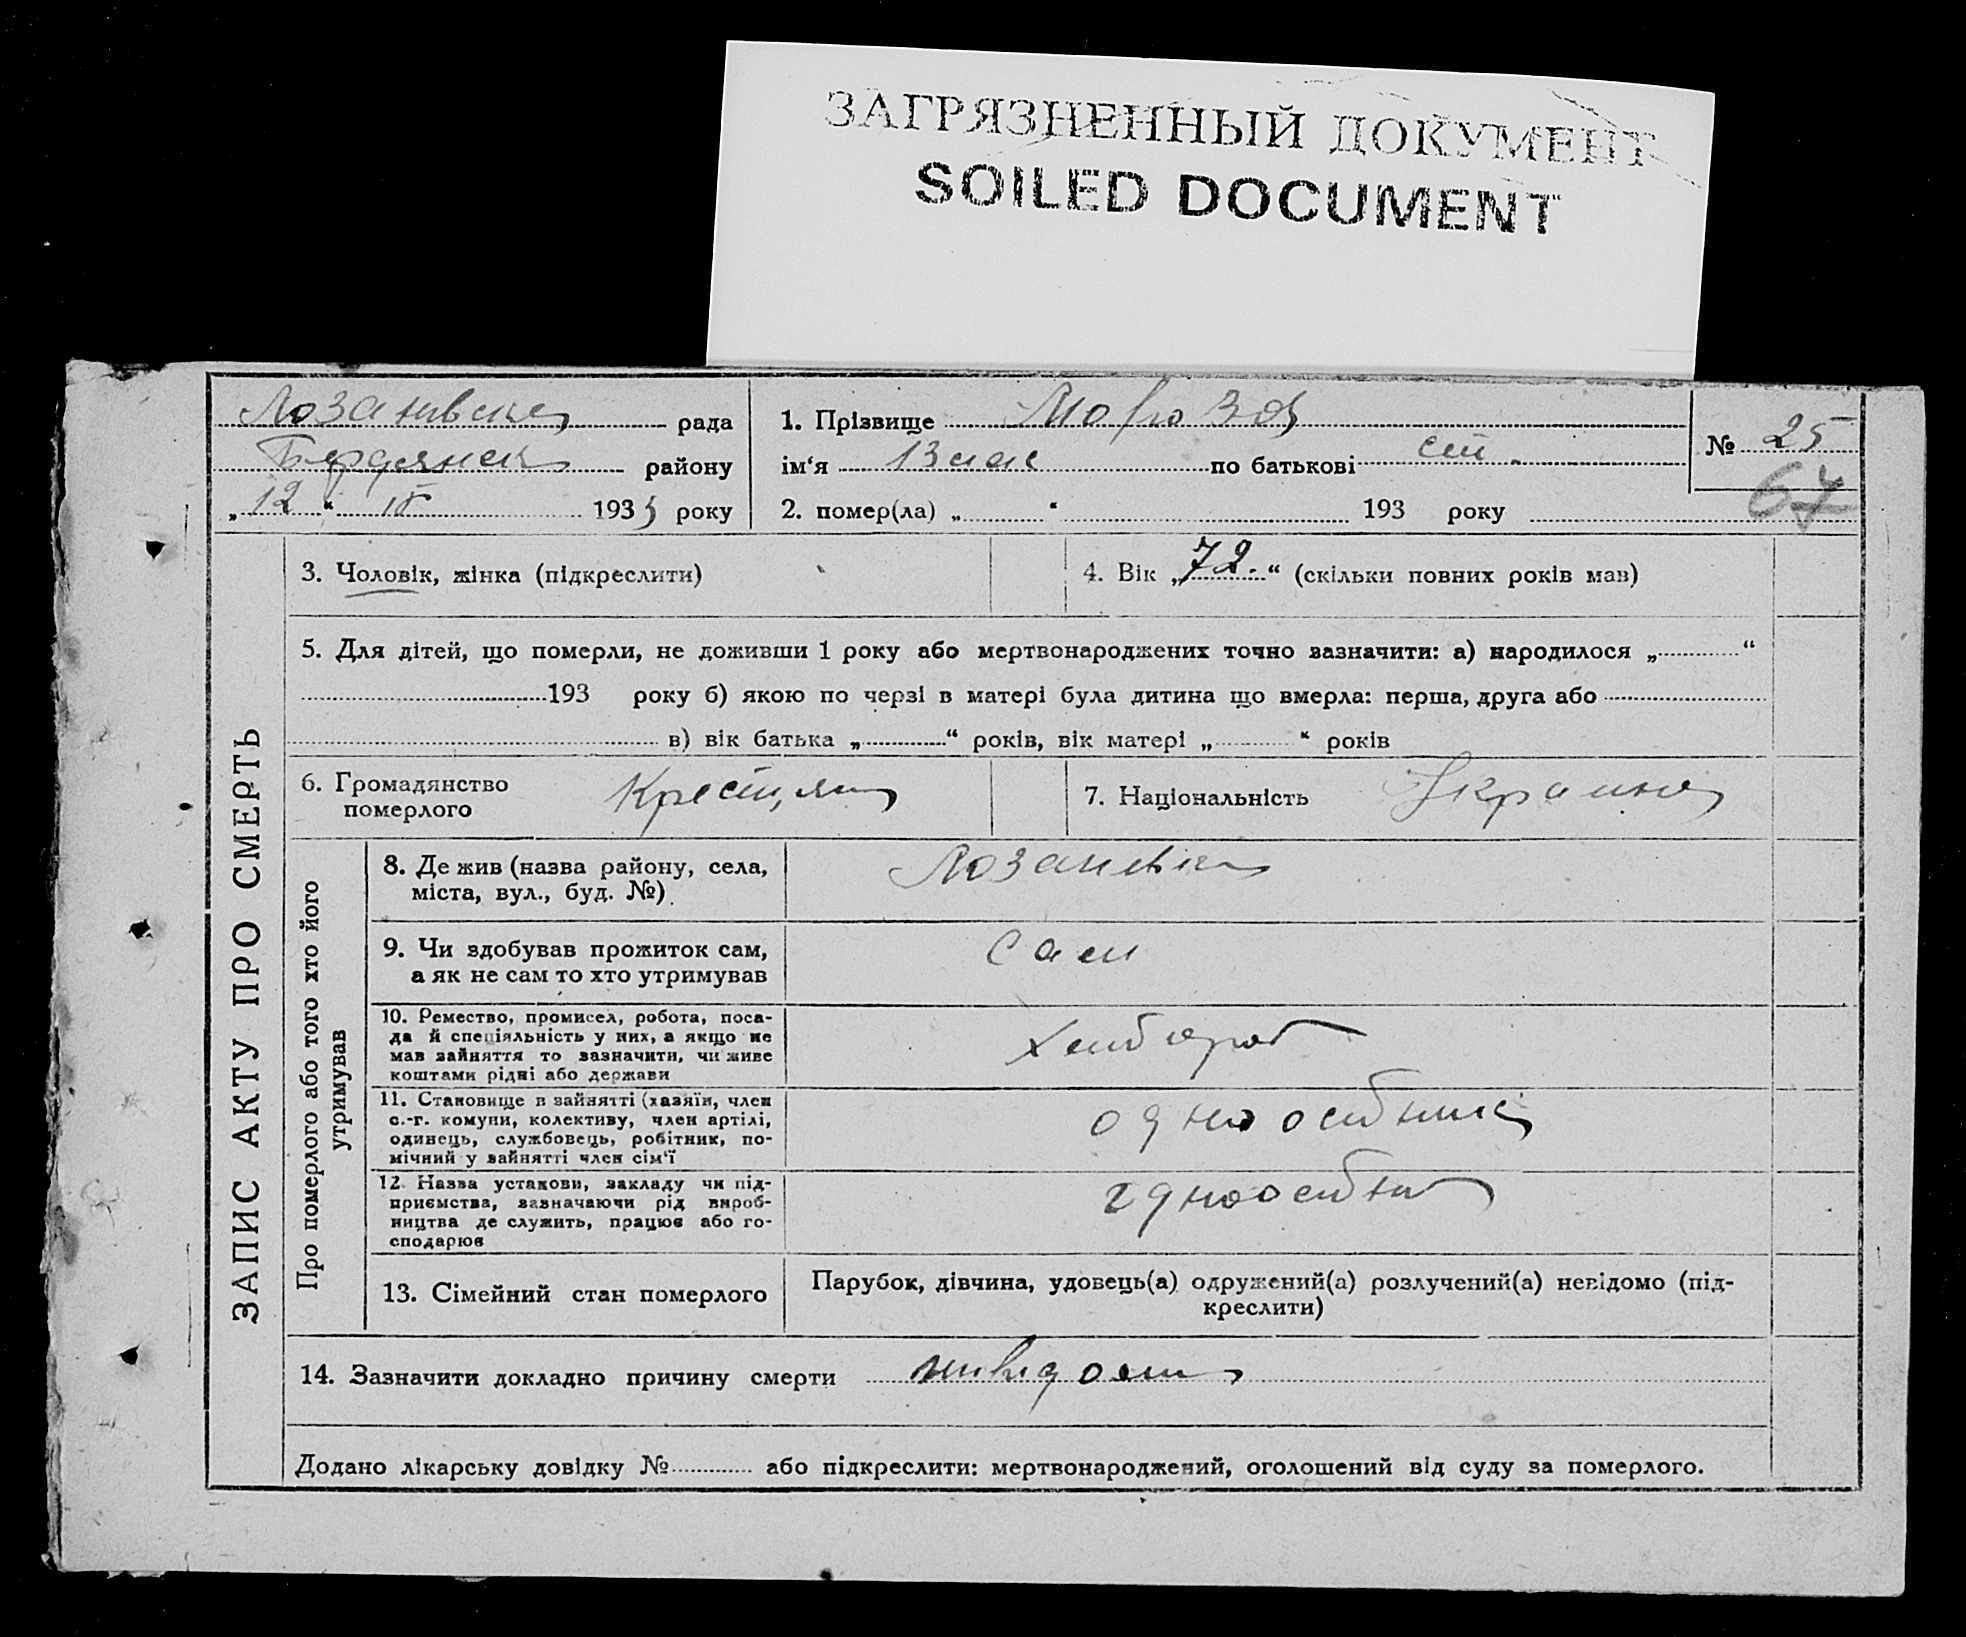 ЗАГРЯЗНЕННЫЙ ДОКУМЕНТ
SOILED DOCUMENT
Лозанівська рада
Бердянськ району
„12“ 193 року
1. Прізвище Мороз
ім‘я по батькові
№ 25
67
2. помер(ла) „ “ 193 року
ЗАПИС АКТУ ПРО СМЕРТЬ
3. Чоловік, жінка (підкреслити)
4. Вік „72.“ (скільки повних років мав)
5. Для дітей, що померли, не доживши 1 року або мертвонароджених точно зазначити: а) народилося „ “
193 року б) якою по черзі в матері була дитина що вмерла: перша, друга або
в) вік батька „ “ років, вік матері „ “ років
6. Громадянство
померлого
7. Національність
Про померлого або того хто його
утримував
8. Де жив (назва району, села,
міста, вул., буд. №)
9. Чи здобував прожиток сам,
а як не сам то хто утримував
сам
10. Ремество, промисел, робота, поса-
да й спеціяльність у них, а якщо не
мав зайняття то зазначити, чи живе
коштами рідні або держави
хлібороб
11. Становище в зайнятті (хазяїн, член
с.-г. комуни, колективу, член артілі,
одинець, службовець, робітник, по-
мічний у зайнятті член сім‘ї
одноосібник
12. Назва установи, закладу чи під-
приємства, зазначаючи рід вироб-
ництва де служить, працює або го-
сподарює
13. Сімейний стан померлого
Парубок, дівчина, удовець(а) одружений(а) розлучений(а) невідомо (під-
креслити)
14. Зазначити докладно причину смерти
Додано лікарську довідку № або підкреслити: мертвонароджений, оголошений від суду за померлого.